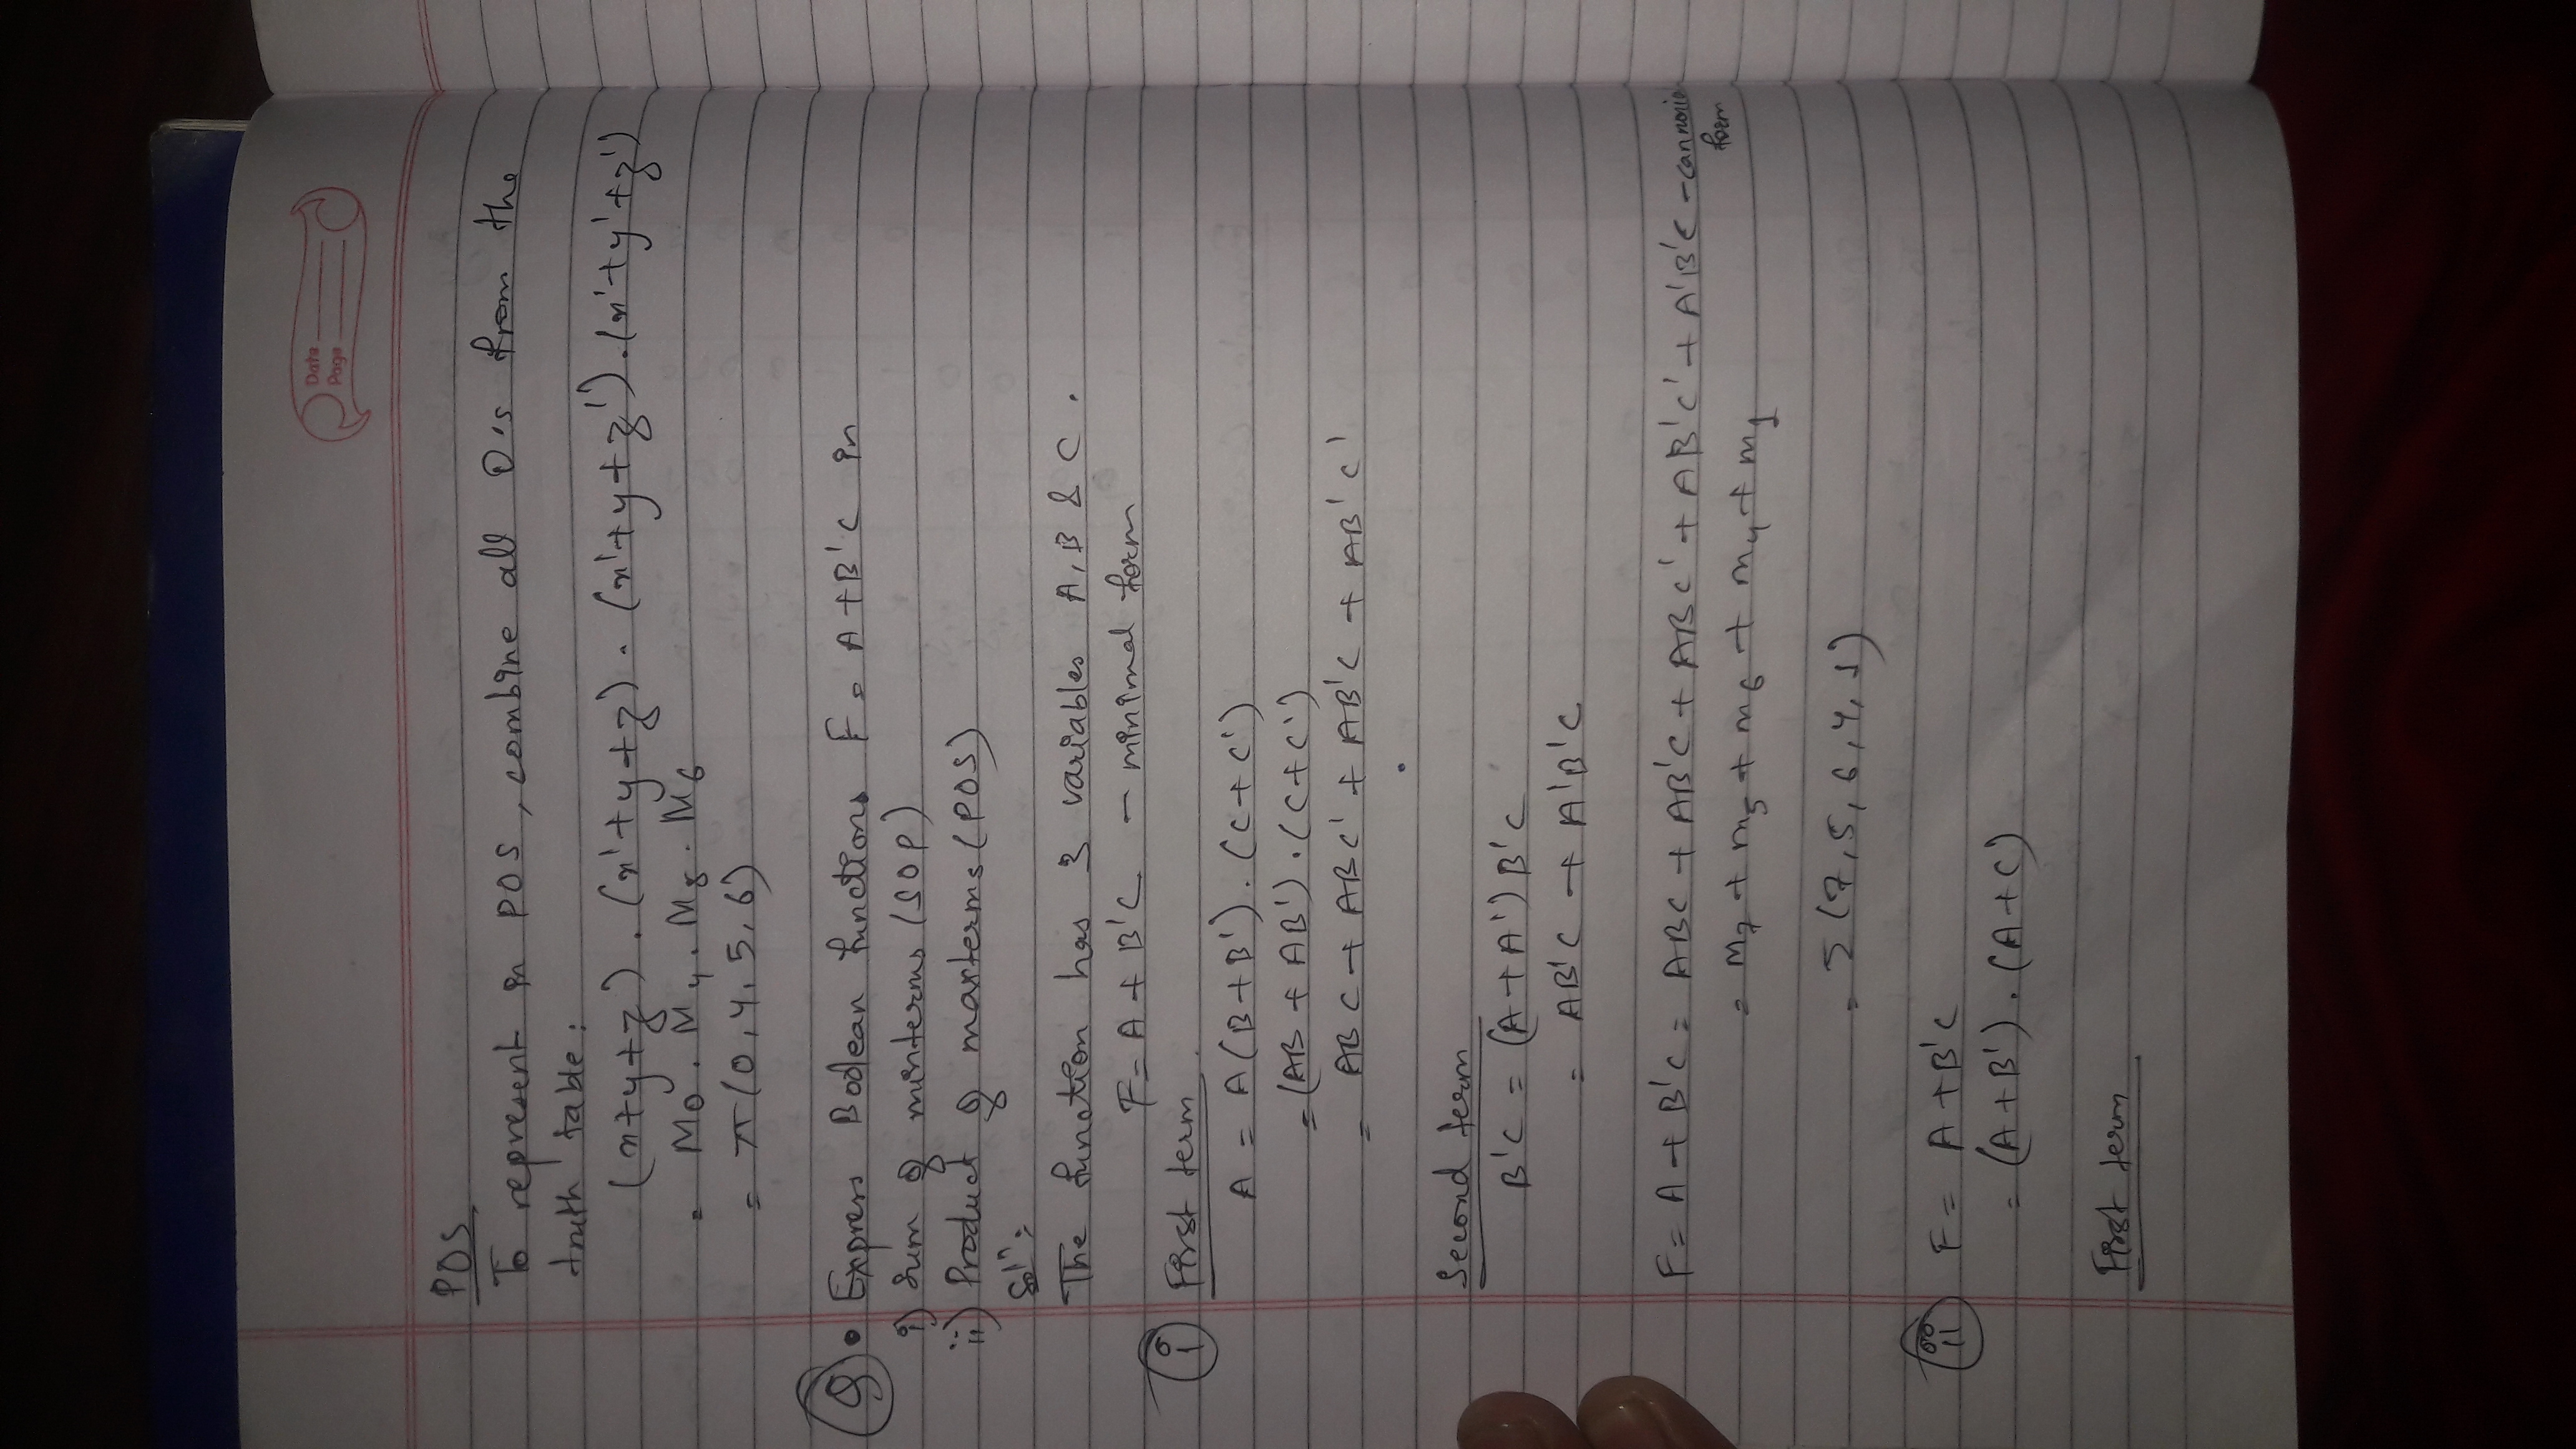 Date
Page
POS
To represent in POS, combine all 0's from the
truth table:
(x+y+z).(x'+y+z).(x'+y+z').(x'+y'+z')
= M0.M4.M5.M6
= π(0,4,5,6)
Q • Express Boolean functions F = A+B'C in
i) Sum of minterms (SOP)
ii) Product of maxterms (POS)
Solⁿ:
The function has 3 variables A, B & C.
F = A + B'C - minimal form
i First term
A = A(B+B').(C+C')
= (AB + AB').(C+C')
= ABC + ABC' + AB'C + AB'C'
Second term
B'C = (A+A')B'C
= AB'C + A'B'C
F = A+B'C = ABC + AB'C + ABC' + AB'C' + A'B'C -
form
= m7 + m5 + m6 + m4 + m1
= Σ(7,5,6,4,1)
ii F = A+B'C
= (A+B').(A+C)
First term